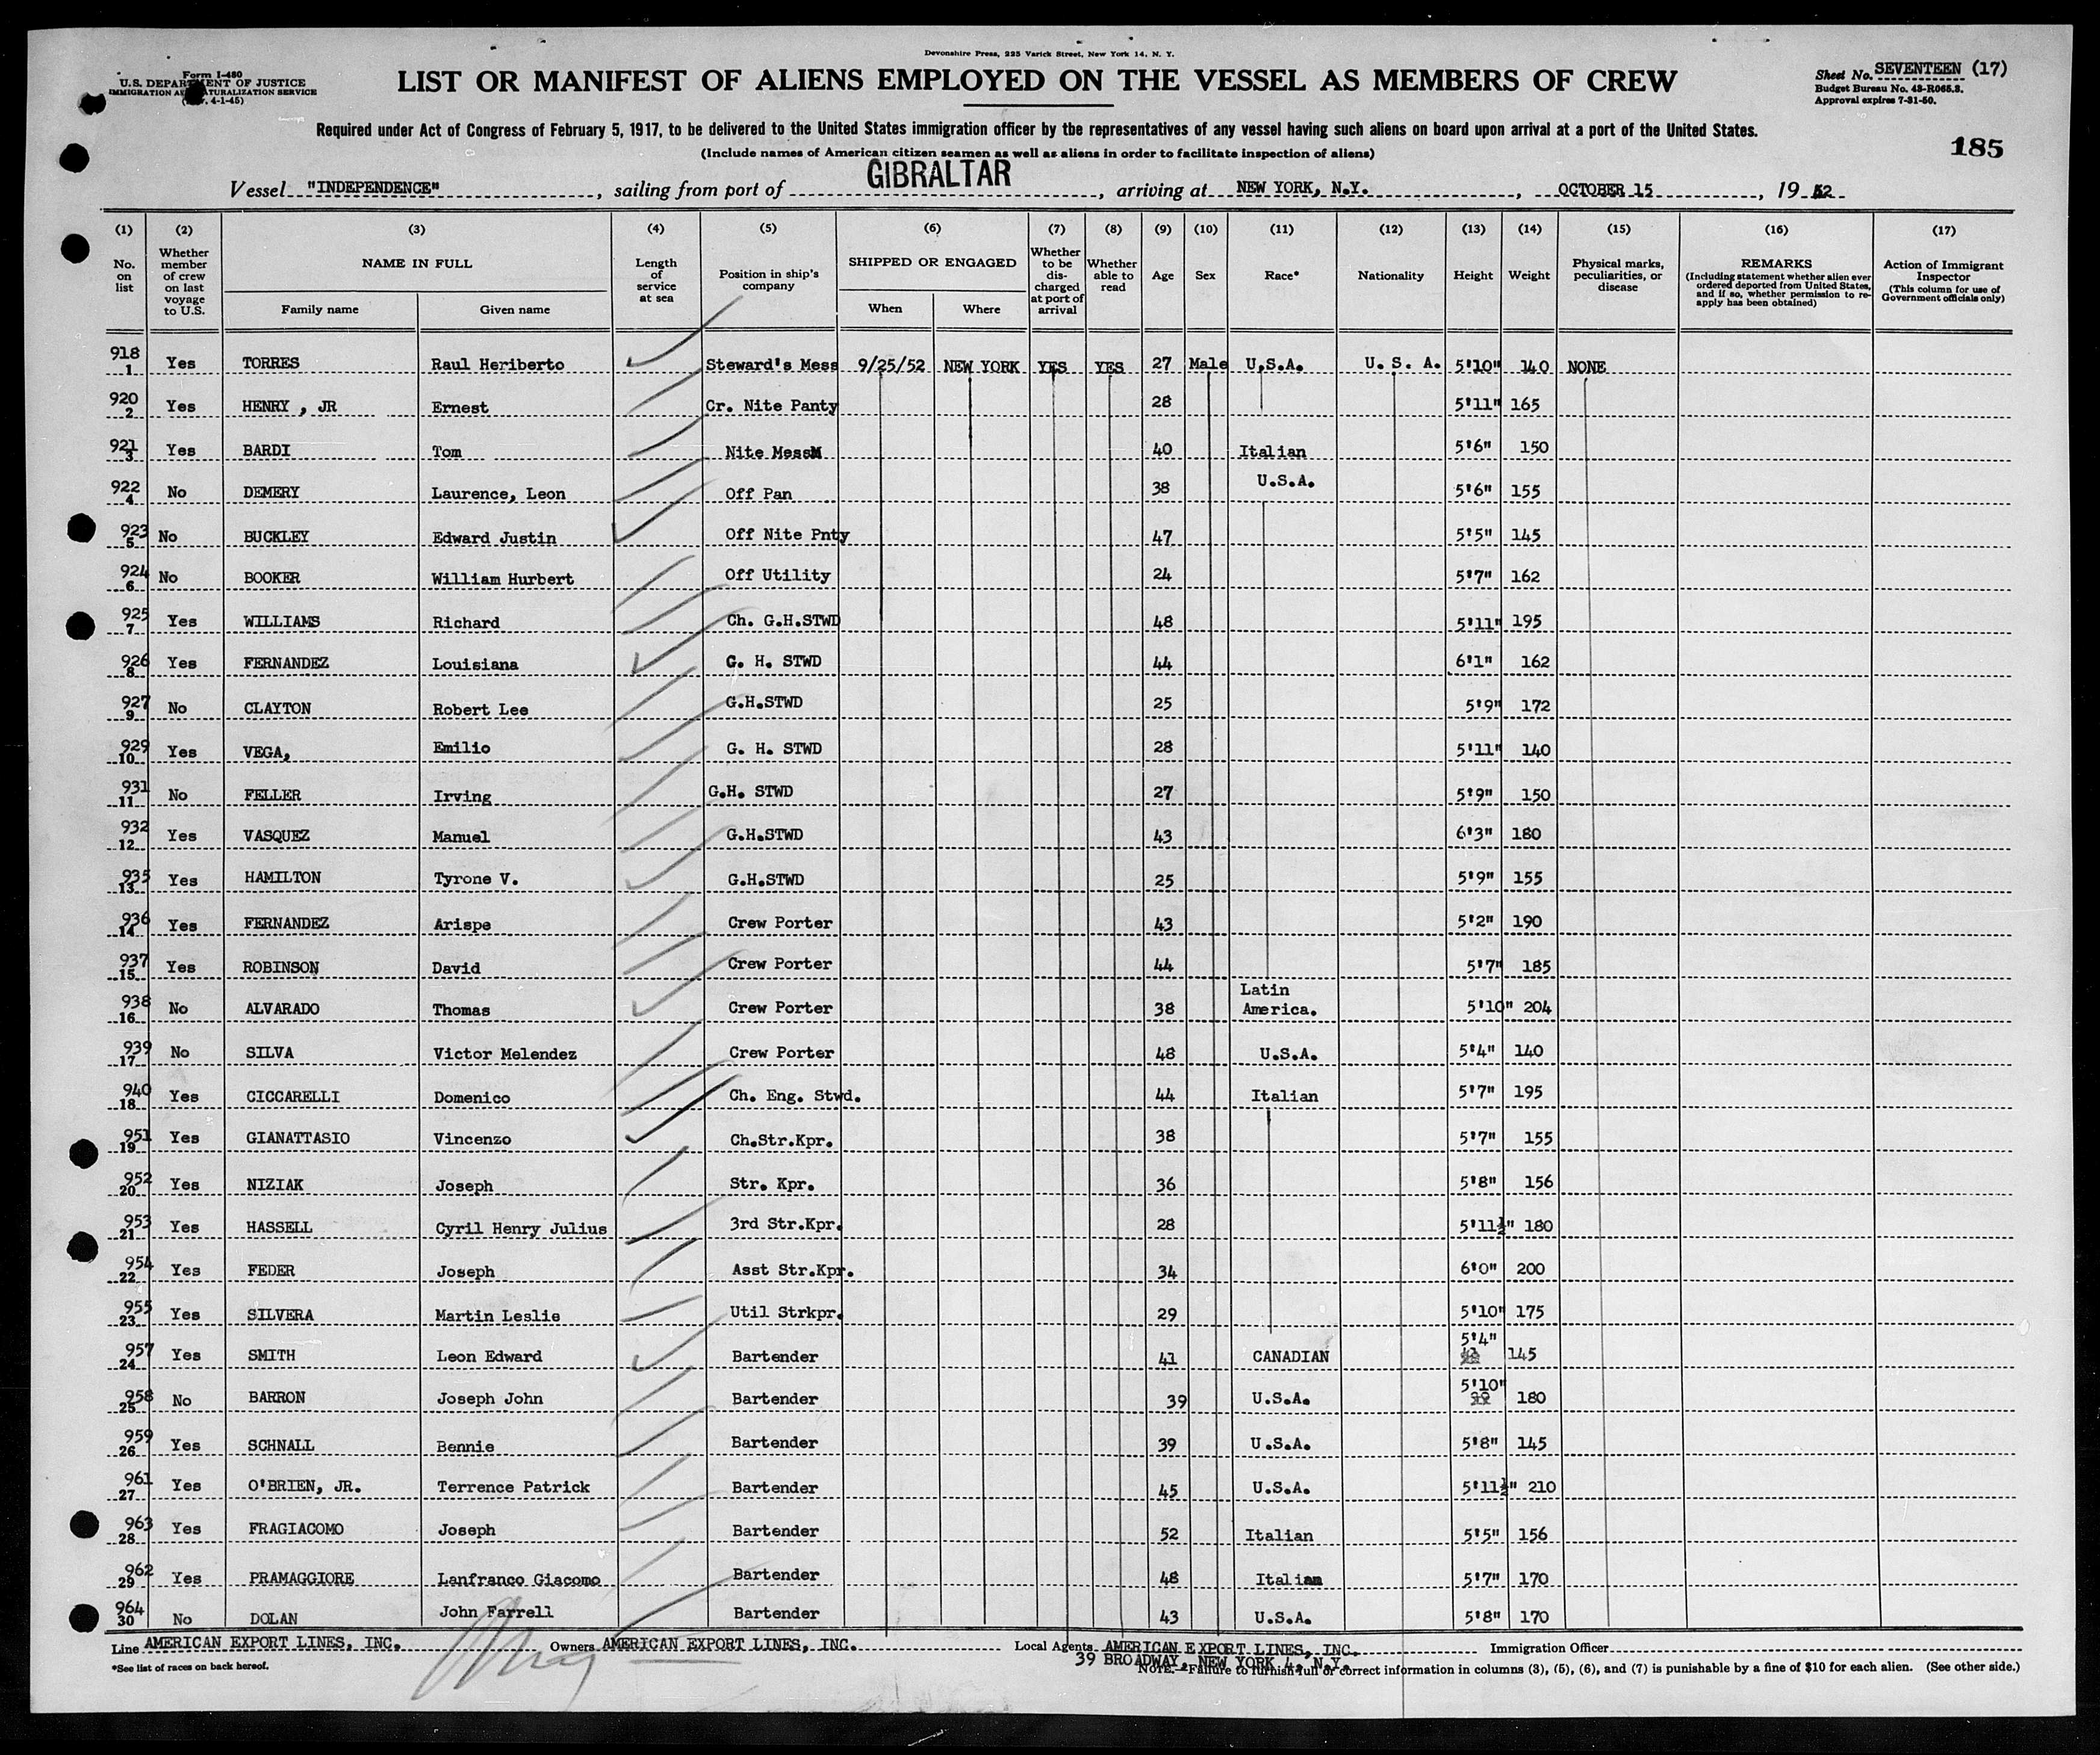 Devonshire Press, 225 Varick Street, New York 14, N. Y.
Form I-480
U.S. DEPARTMENT OF JUSTICE
IMMIGRATION AND NATURALIZATION SERVICE
4-1-45)
LIST OR MANIFEST OF ALIENS EMPLOYED ON THE VESSEL AS MEMBERS OF CREW
Sheet No. SEVENTEEN (17)
Budget Bureau No. 43-R065.3.
Approval expires 7-31-50.
Required under Act of Congress of February 5, 1917, to be delivered to the United States immigration officer by the representatives of any vessel having such aliens on board upon arrival at a port of the United States.
(Include names of American citizen seamen as well as aliens in order to facilitate inspection of aliens)
185
Vessel "INDEPENDENCE", sailing from port of GIBRALTAR, arriving at NEW YORK, N.Y., OCTOBER 15, 19 52
(1) (2) (3) (4) (5) (6) (7) (8) (9) (10) (11) (12) (13) (14) (15) (16) (17)
No. on list
Whether member of crew on last voyage to U.S.
NAME IN FULL
Family name
Given name
Length of service at sea
Position in ship's company
SHIPPED OR ENGAGED
When
Where
Whether to be discharged at port of arrival
Whether able to read
Age
Sex
Race*
Nationality
Height
Weight
Physical marks, peculiarities, or disease
REMARKS
(Including statement whether alien ever ordered deported from United States, and if so, whether permission to re-apply has been obtained)
Action of Immigrant Inspector
(This column for use of Government officials only)
918 1 Yes TORRES Raul Heriberto Steward's Mess 9/25/52 NEW YORK YES YES 27 Male U.S.A. U. S. A. 5'10" 140 NONE
920 2 Yes HENRY , JR Ernest Cr. Nite Panty 28 5'11" 165
921 3 Yes BARDI Tom Nite MessM 40 Italian 5'6" 150
922 4 No DEMERY Laurence, Leon Off Pan 38 U.S.A. 5'6" 155
923 5 No BUCKLEY Edward Justin Off Nite Pnty 47 5'5" 145
924 6 No BOOKER William Hurbert Off Utility 24 5'7" 162
925 7 Yes WILLIAMS Richard Ch. G.H.STWD 48 5'11" 195
926 8 Yes FERNANDEZ Louisiana G. H. STWD 44 6'1" 162
927 9 No CLAYTON Robert Lee G.H.STWD 25 5'9" 172
929 10 Yes VEGA, Emilio G. H. STWD 28 5'11" 140
931 11 No FELLER Irving G.H. STWD 27 5'9" 150
932 12 Yes VASQUEZ Manuel G.H.STWD 43 6'3" 180
935 13 Yes HAMILTON Tyrone V. G.H.STWD 25 5'9" 155
936 14 Yes FERNANDEZ Arispe Crew Porter 43 5'2" 190
937 15 Yes ROBINSON David Crew Porter 44 5'7" 185
938 16 No ALVARADO Thomas Crew Porter 38 Latin America. 5'10" 204
939 17 No SILVA Victor Melendez Crew Porter 48 U.S.A. 5'4" 140
940 18 Yes CICCARELLI Domenico Ch. Eng. Stwd. 44 Italian 5'7" 195
951 19 Yes GIANATTASIO Vincenzo Ch.Str.Kpr. 38 5'7" 155
952 20 Yes NIZIAK Joseph Str. Kpr. 36 5'8" 156
953 21 Yes HASSELL Cyril Henry Julius 3rd Str.Kpr. 28 5'11½" 180
954 22 Yes FEDER Joseph Asst Str.Kpr. 34 6'0" 200
955 23 Yes SILVERA Martin Leslie Util Strkpr. 29 5'10" 175
957 24 Yes SMITH Leon Edward Bartender 41 CANADIAN 5'4" 145
958 25 No BARRON Joseph John Bartender 39 U.S.A. 5'10" 180
959 26 Yes SCHNALL Bennie Bartender 39 U.S.A. 5'8" 145
961 27 Yes O'BRIEN, JR. Terrence Patrick Bartender 45 U.S.A. 5'11½" 210
963 28 Yes FRAGIACOMO Joseph Bartender 52 Italian 5'5" 156
962 29 Yes PRAMAGGIORE Lanfranco Giacomo Bartender 48 Italian 5'7" 170
964 30 No DOLAN John Farrell Bartender 43 U.S.A. 5'8" 170
Line AMERICAN EXPORT LINES, INC. Owners AMERICAN EXPORT LINES, INC. Local Agents AMERICAN EXPORT LINES, INC. Immigration Officer
39 BROADWAY, NEW YORK 4, N.Y.
*See list of races on back hereof.
NOTE.—Failure to furnish full or correct information in columns (3), (5), (6), and (7) is punishable by a fine of $10 for each alien. (See other side.)